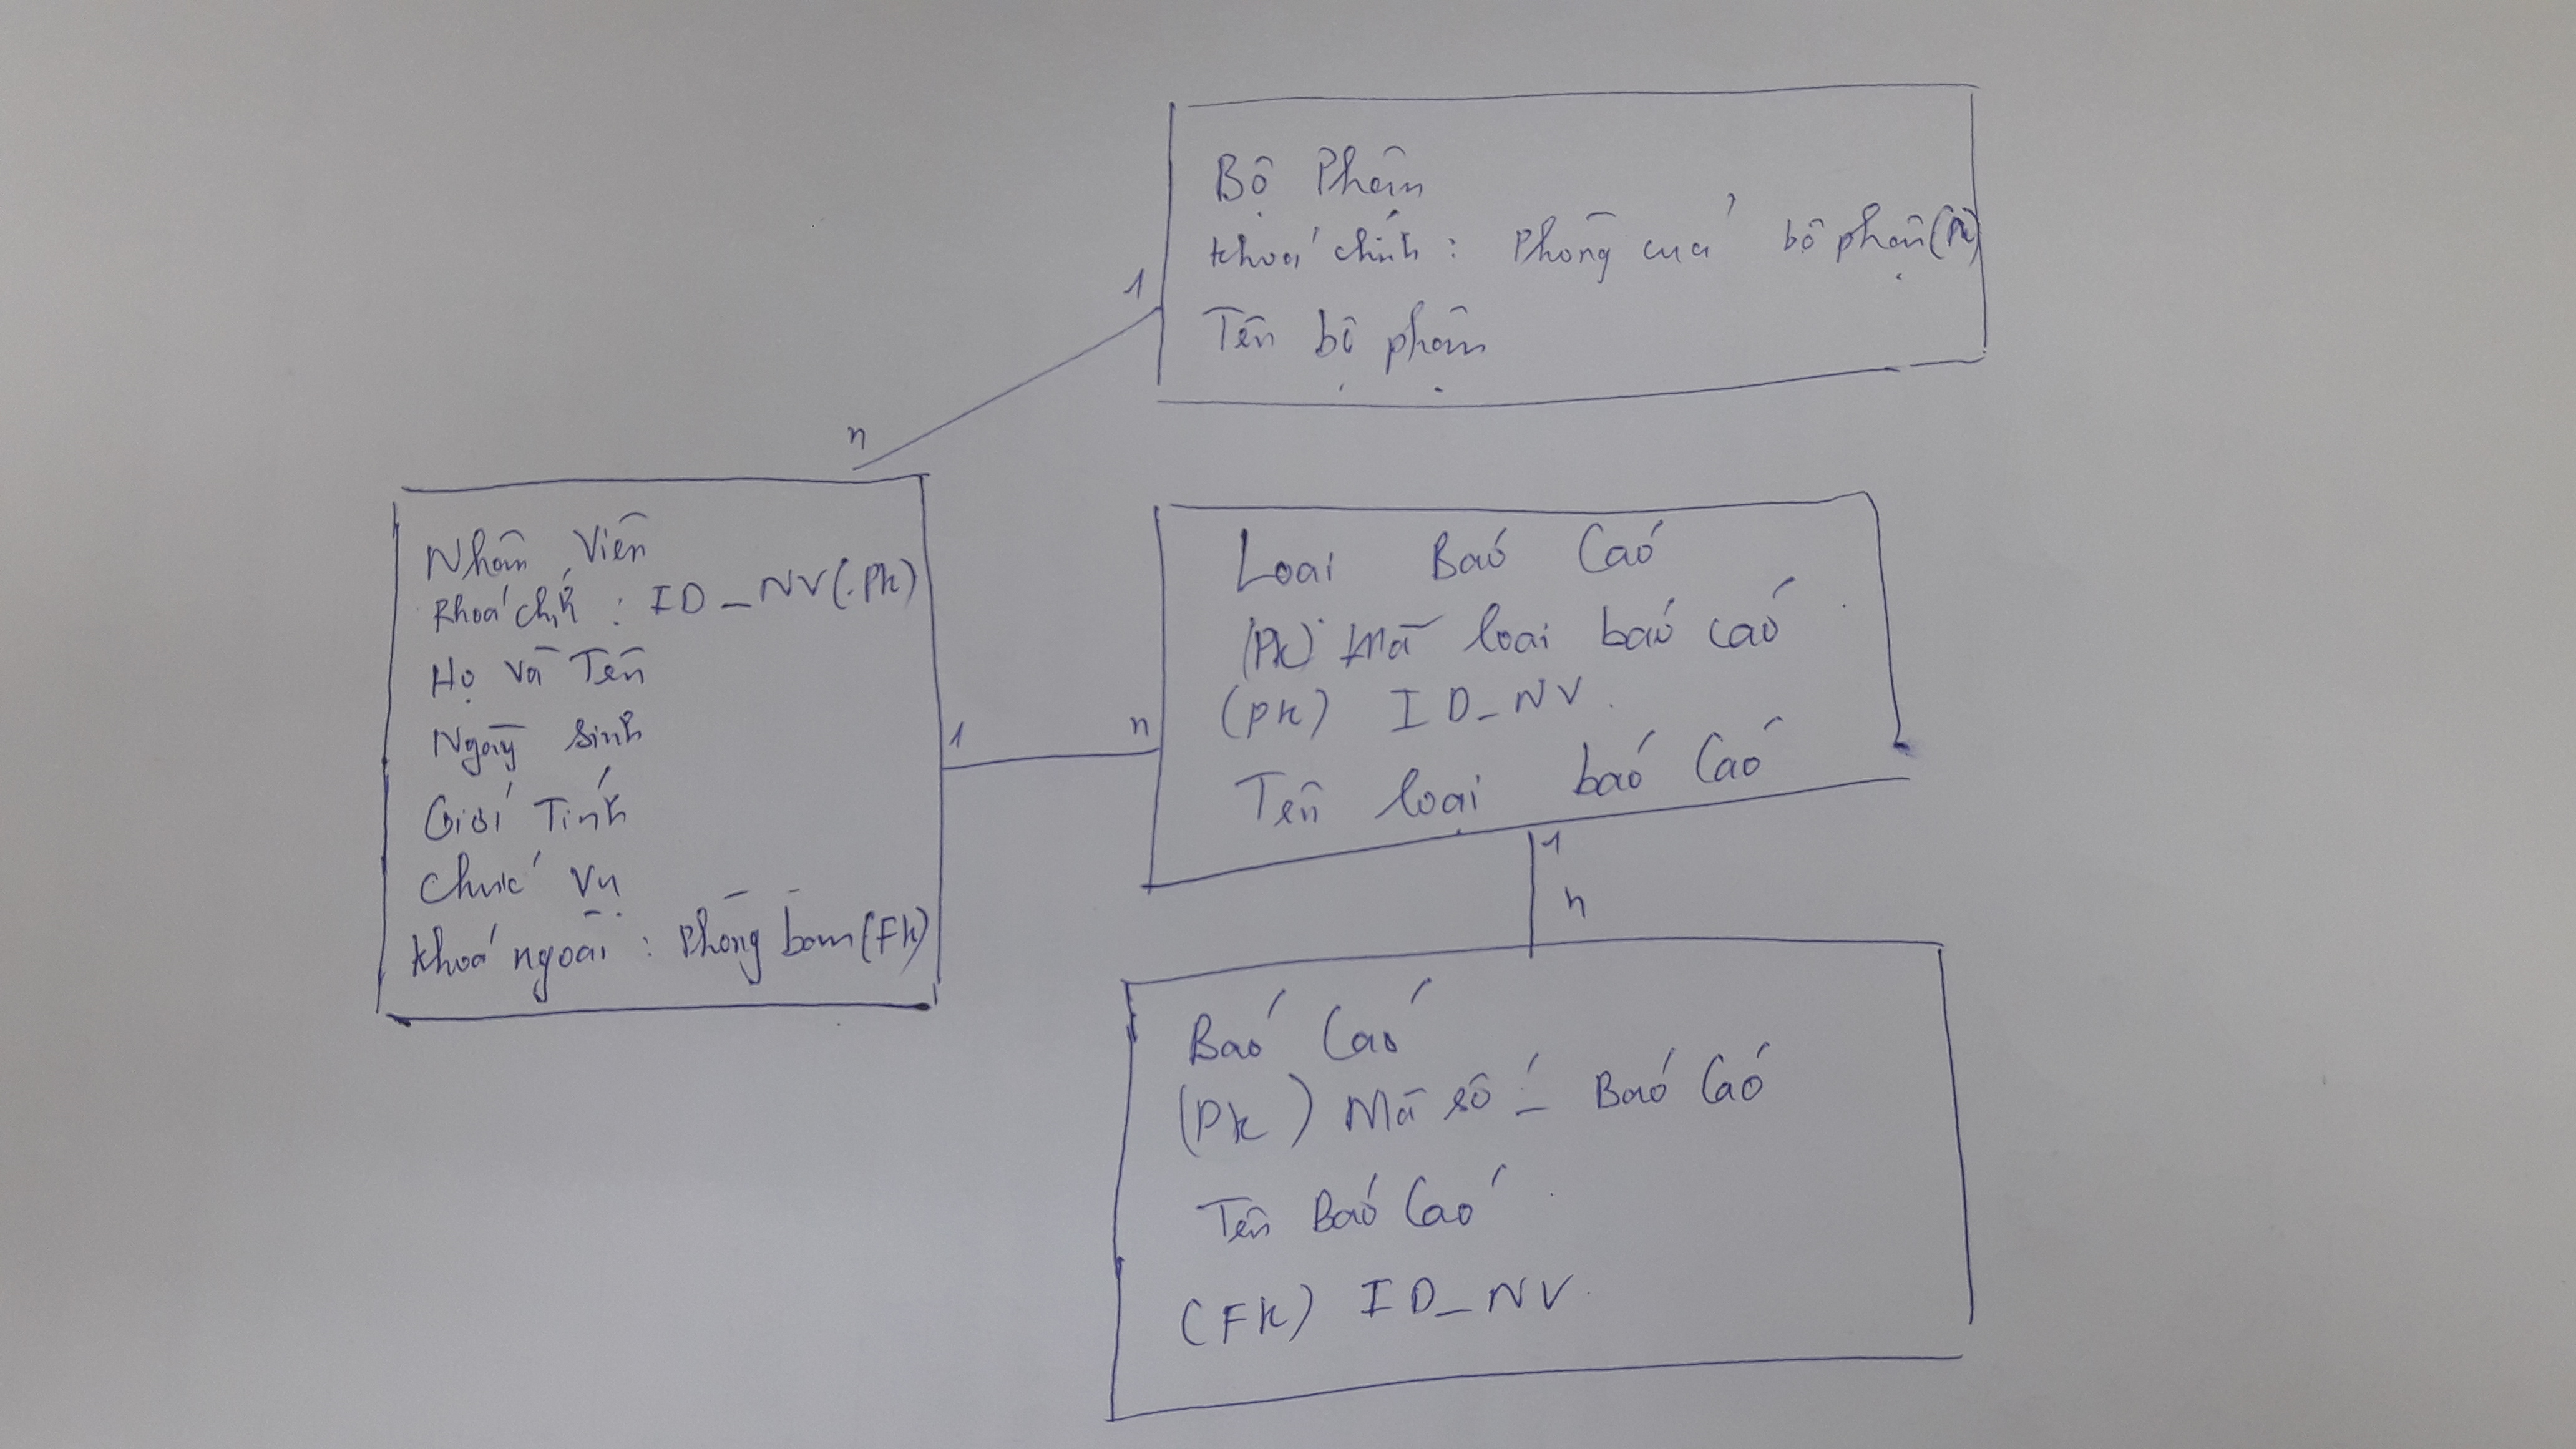 Bộ Phận
Khoá chính : Phòng của bộ phận (PK)
Tên bộ phận
1
n
Nhân Viên
Khoá chính : ID_NV (PK)
Họ và Tên
Ngày sinh
Giới Tính
Chức Vụ
Khoá ngoài : Phòng ban (FK)
1
n
Loai Báo Cáo
(PK) Mã loai báo cáo
(PK) ID_NV
Tên loại báo Cáo
1
n
Báo Cáo
(PK) Mã số_Báo Cáo
Tên Báo Cáo
(FK) ID_NV